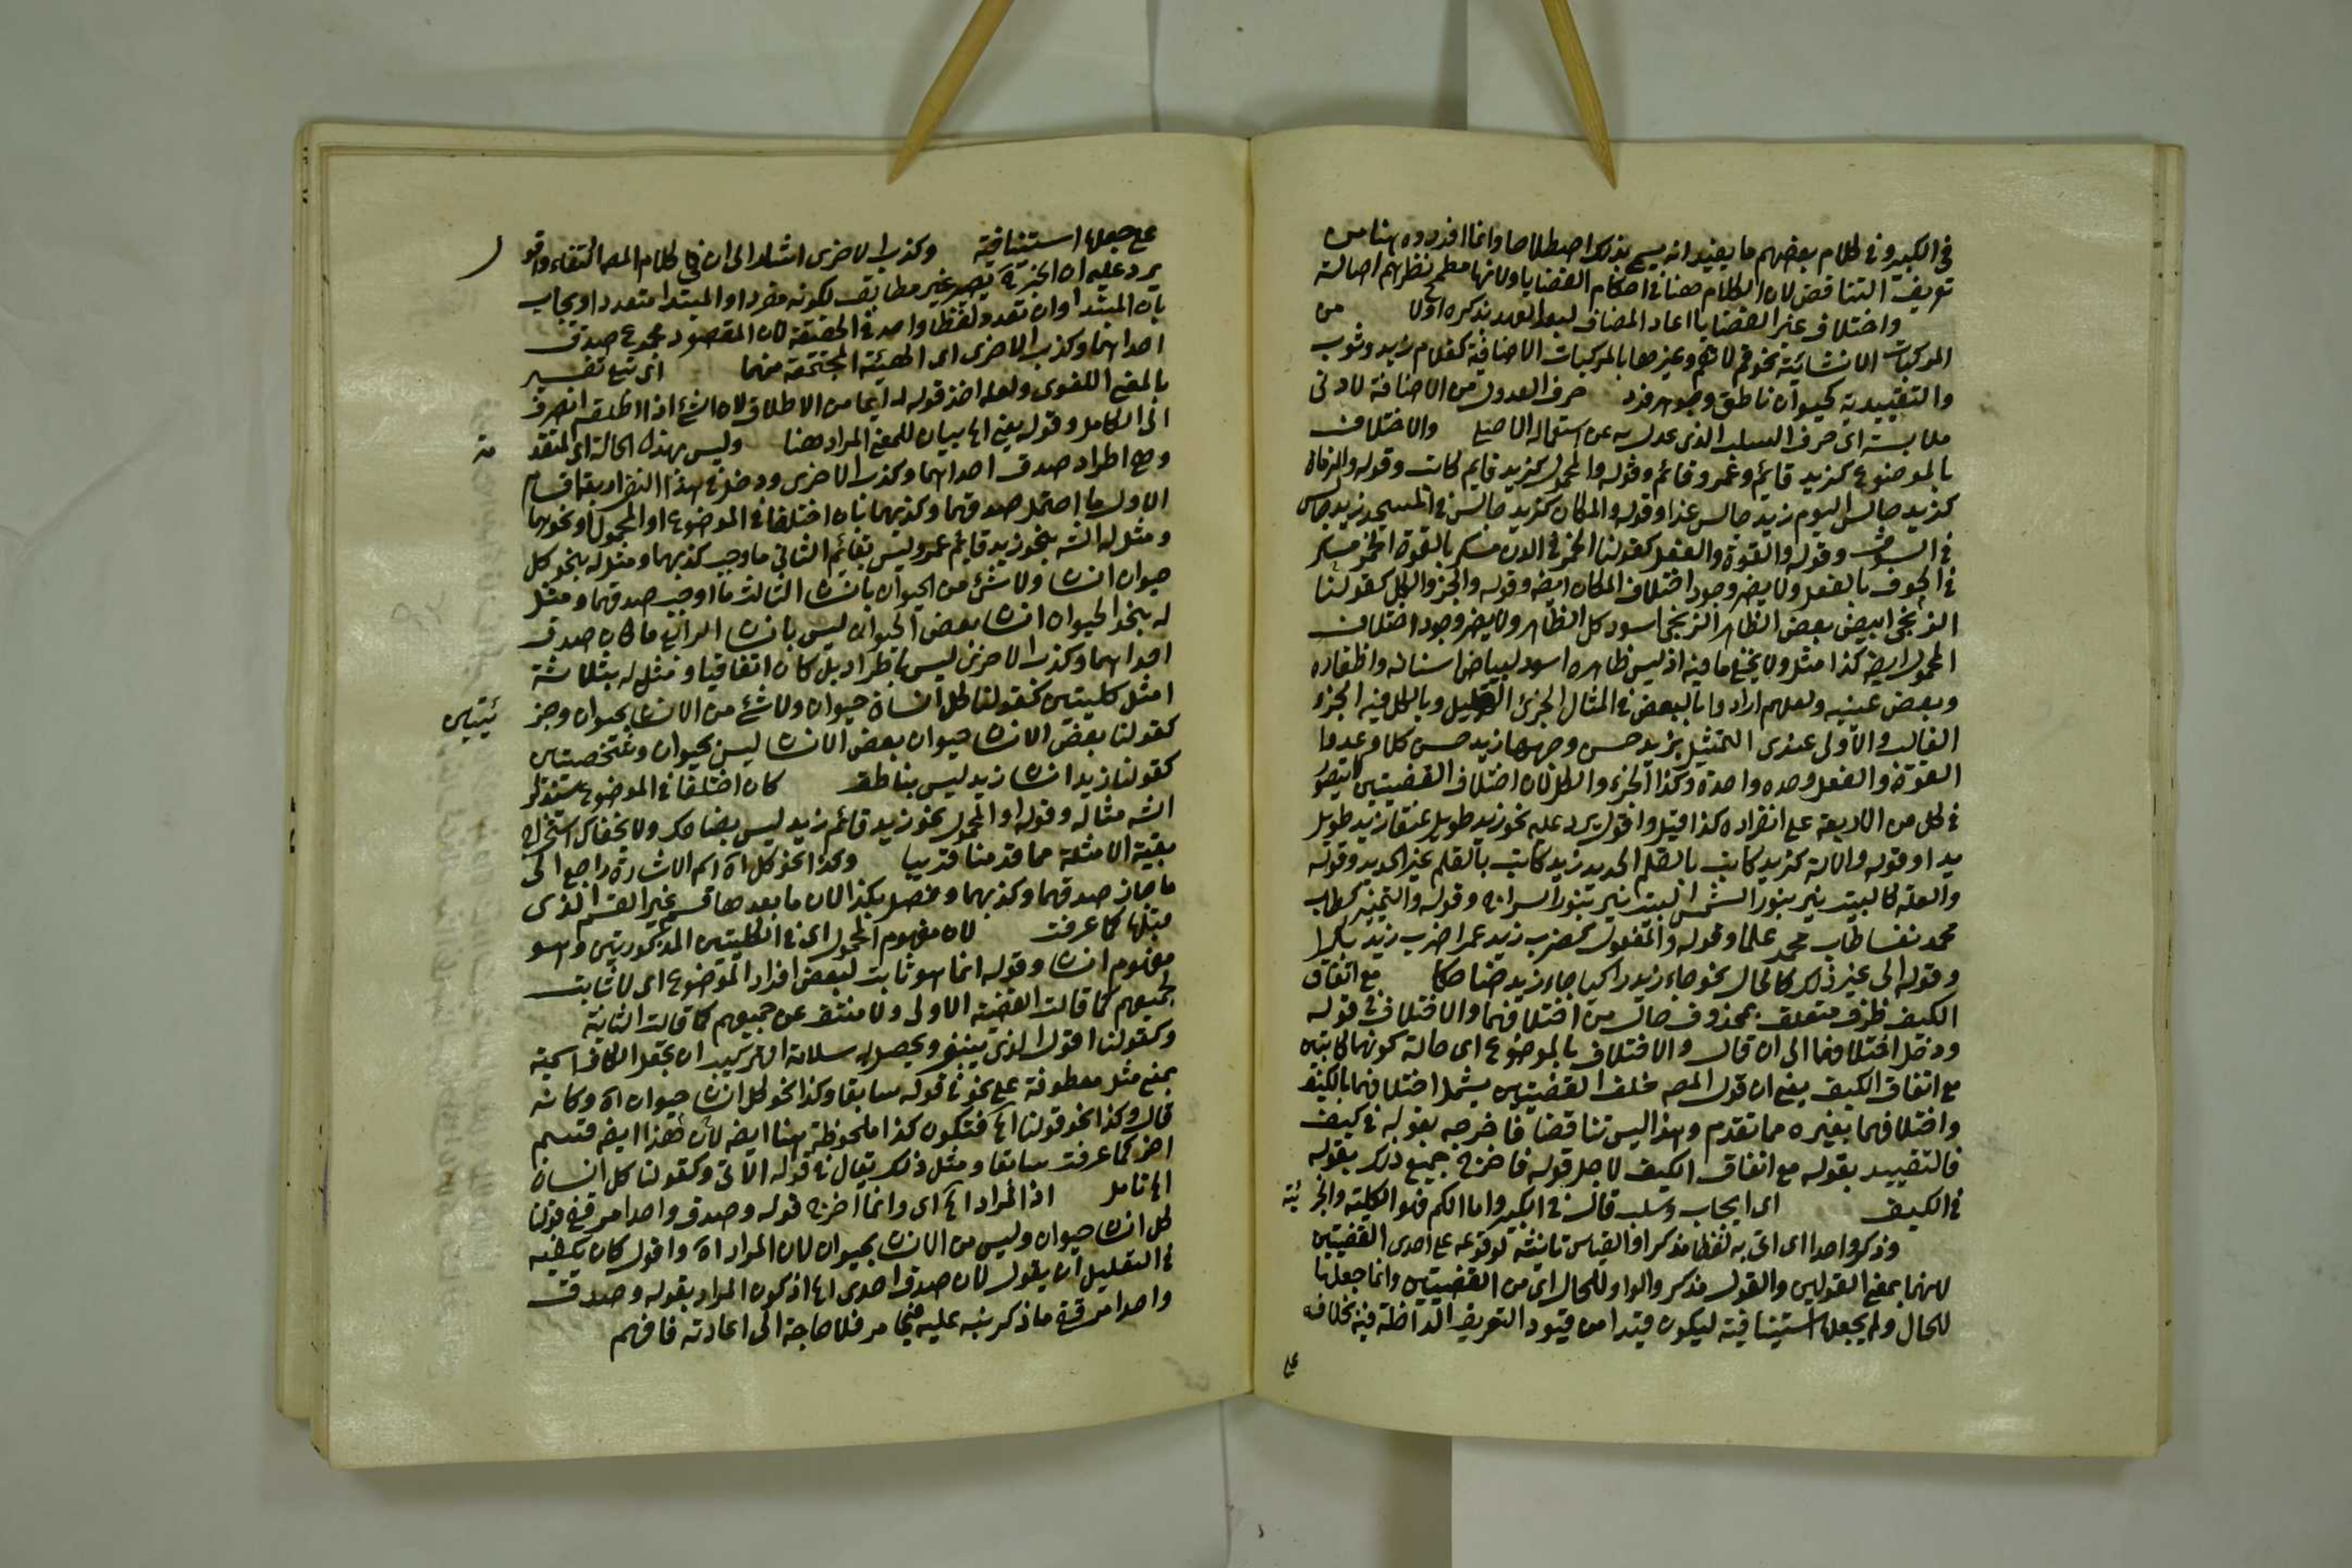 في الكبير وفي كلام بعضهم ما يفيد انه يسمى بذلك اصطلاحا وانما افردوه هنا من
تعريف التناقض لان الكلام هنا في احكام القضايا ولانها مطمح نظرهم اصالة
واختلاف غير القضايا اعاد المضاف لبعد العهد بذكره اولا من
المركبات الانشائية نحو قم لا تقم وغيرها بالمركبات الاضافية كغلام زيد وثوب
والتقييدية كحيوان ناطق وجوهر فرد حرف العدول من الاضافة لادنى
ملابسة اي حرف السلب الذي عدل به عن استعماله الاصلي والاختلاف
بالموضوع كزيد قائم وعمرو قائم وقوله والمحمول كزيد قايم كاتب وقوله والزمان
كزيد جالس اليوم زيد جالس غدا وقوله والمكان كزيد جالس في المسجد زيد جالس
في السوق وقوله والقوة والفعل كقولنا الخمر في الدن مسكر بالقوة الخمر مسكر
في الجوف بالفعل ولا يضر وجود اختلاف المكان ايضه وقوله والجزء والكل كقولنا
الزنجي ابيض بعض الظاهر الزنجي اسود كل الظاهر ولا يضر وجود اختلاف
المحمول ايضه كذا مثل ولا يخفى ما فيه اذ ليس ظاهره اسود لبياض اسنانه واظفاره
وبعض عينيه ولعلهم ارادوا بالبعض في المثال الجزئي القليل وبالكل فيه الجزء
الغالب والاولى عندي التمثيل بزيد حسن وجهها زيد حسن كلا وعدوا
القوة والفعل وحده واحدة وكذا الجزء والكل لان اختلاف القضيتين لا يتصور
في كل من الاربعة على انفراده كذا قيل واقول يرد عليه نحو زيد طويل عنقا زيد طويل
يدا وقوله والالة كزيد كاتب بالقلم الحديد زيد كاتب بالقلم غير الحديد وقوله
والعلة كالبيت نير بنور الشمس البيت نير بنور السراج وقوله والتمييز كطاب
محمد نفسا طاب محمد علما وقوله والمفعول كضرب زيد عمرا ضرب زيد بكرا
وقوله الى غير ذلك كالحال نحو جاء زيد راكبا جاء زيد ضاحكا مع اتفاق
الكيف ظرف متعلق بمحذوف حال من اختلافهما والاختلاف في قوله
ودخل اختلافهما الى ان قال والاختلاف بالموضوع اي حالة كونهما كائنين
مع اتفاق الكيف يعني ان قول المصه خلف القضيتين يشمل اختلافهما بالكيف
واختلافهما بغيره مما تقدم وهذا ليس تناقضا فاخرجه بقوله في كيف
فالتقييد بقوله مع اتفاق الكيف لاجل قوله فاخرج جميع ذلك بقوله
في الكيف اي ايجاب وسلب قال في الكبير واما الكم فهو الكلية والجزئية
وذكر واحدا اي اتى به لفظا مذكرا والقياس تانيثه لوقوعه على احدى القضيتين
لانهما بمعنى القولين والقول مذكر والواو للحال اي من القضيتين وانما جعلها
للحال ولم يجعلها استينافية ليكون قيدا من قيود التعريف الداخلة فيه بخلافه
على
على جعلها استينافية وكذب الاخرى اشار الى ان في كلام المصه اكتفاء وقو ل
يرد عليه ان الخبر يصير غير مطابق لكونه مفردا والمبتدا متعددا ويجاب
بان المبتدا وان تعدد لفظا واحد في الحقيقة لان المقصود مجموع صدق
احداهما وكذب الاخرى اي الهيئة المجتمعة منهما اي تبع تفسير
بالمعنى اللغوي ولعله اخذ قوله دايما من الاطلاق لان الشئ اذا اطلق انصرف
الى الكامل وقوله يعني اه بيان للمعنى المراد هنا وليس بهذه الحالة اي المتقد مة
وهي اطراد صدق احداهما وكذب الاخرى ودخل في هذا النفي اربعة اقسام
الاول ما احتمل صدقهما وكذبهما بان اختلفا في الموضوع او المحمول او نحوهما
ومثل له الشه بنحو زيد قايم عمرو ليس بقايم الثاني ما وجب كذبهما ومثل له بنحو كل
حيوان انسان ولا شئ من الحيوان بانسان الثالث ما اوجب صدقهما ومثل
له بنحو الحيوان انسان بعض الحيوان ليس بانسان الرابع ما كان صدق
احداهما وكذب الاخرى ليس باطراد بل كان اتفاقيا ومثل له بثلاثة
امثل كليتين كقولنا كل انسان حيوان ولا شئ من الانسان بحيوان وجز ئيتين
كقولنا بعض الانسان حيوان بعض الانسان ليس بحيوان وشخصيتين
كقولنا زيد انسان زيد ليس بناطق كان اختلفا في الموضوع ستذكر
الشه مثاله وقوله او المحمول نحو زيد قائم زيد ليس بضاحك ولا يخفاك استخراج
بقية الامثلة مما قدمنا قريبا وكذا نحو كل اه اسم الاشارة راجع الى
ما جاز صدقهما وكذبهما وفصل بكذا لان ما بعدها قسم غير القسم الذي
قبلها كما عرفت لان مفهوم المحمول اي في الكليتين المذكورتين وهو
مفهوم انسان وقوله انما هو ثابت لبعض افراد الموضوع اي لا ثابت
لجميعهم كما قالت القضية الاولى ولا منتف عن جميعهم كما قالت الثانية
وكقولنا اقول الذي ينبغي ويحصل به سلامة الترتيب ان يجعل الكاف اسمية
بمعنى مثل معطوفة على نحو في قوله سابقا وكذا نحو كل انسان حيوان اه وكانه
قال وكذا نحو قولنا اه فتكون كذا ملحوظة هنا ايضه لان هذا ايضه قسم
اخر كما عرفت سابقا ومثل ذلك يقال في قوله الاتي وكقولنا كل انسان
اه تامل اذ المراد اه اي وانما اخرج قوله وصدق واحد امر قفي قولنا
كل انسان حيوان وليس من الانسان بحيوان لان المراد اه واقول كان يكفيه
في التعليل ان يقول لان صدق احدى اه اذ كون المراد بقوله وصدق
واحد امر قفي ما ذكر نبه عليه فيما مر فلا حاجة الى اعادته فافهم